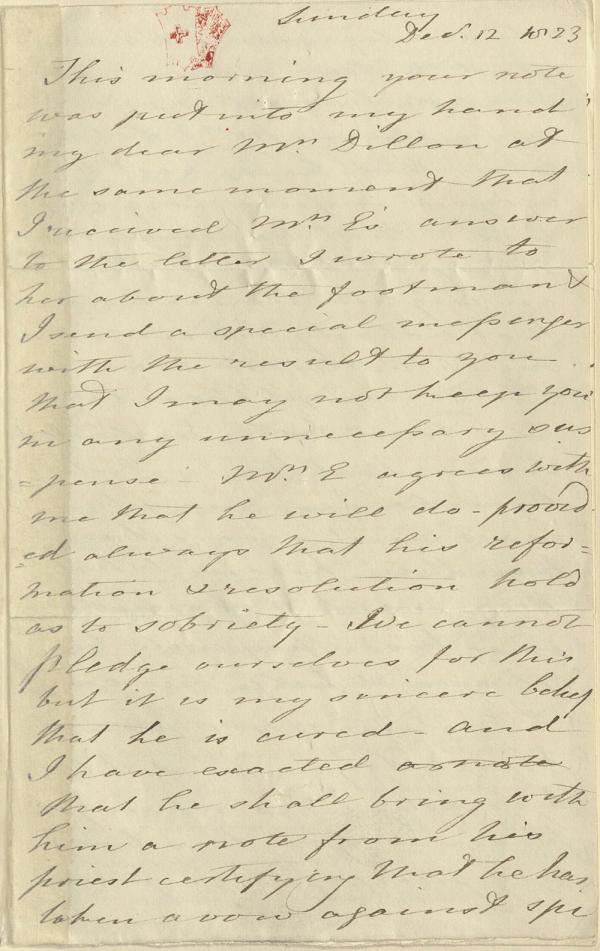 Sunday
Decr. 12 1823
This morning your note
was put into my hand
my dear Mrs Dillon at
the same moment that
I received Mrs E's answer
to the letter I wrote to
her about the footman &
I send a special meſsenger
with the result to you
that I may not keep you
in any unneceſsary sus
=pense - Mrs E agrees with
me that he will do - provid
=ed always that his refor=
mation & resolution hold
as to sobriety - We cannot
pledge ourselves for this
but it is my sincere belief
that he is cured - and
I have exacted a note
that he shall bring with
him a note from his
priest certifying that he has
taken a vow against spi